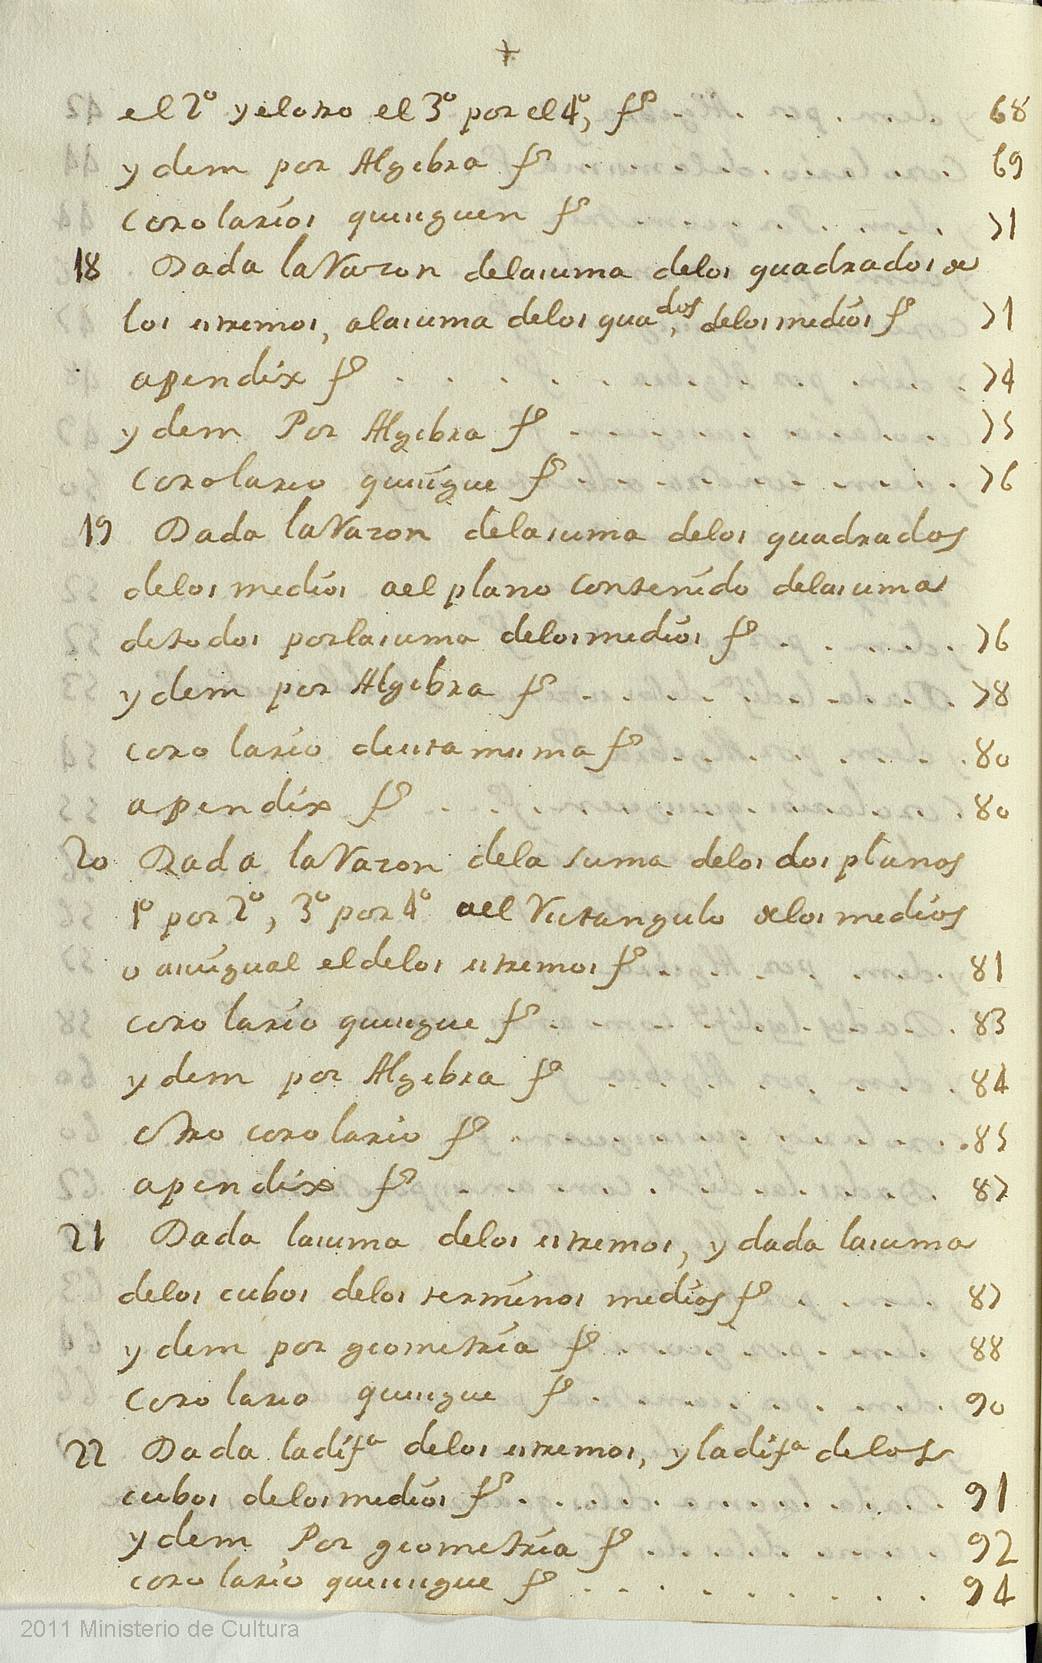 +
el 2º y el otro el 3º por el 4º, fº 68
ydem por Algebra fº 69
corolarios que siguen fº . . . . . . . 71
18 Dada la Razon de la suma de los quadrados de
los estremos, a la suma de los quados, de los medios fº 71
apendix fº . . . . . . . . . . 74
ydem Por Algebra fº . . . . . . . 75
corolario que sigue fº . . . . . . . 76
19 Dada la Razon de la suma de los quadrados
de los medios a el plano contenido de la suma
de todos por la suma de los medios fº . . . . 76
ydem por Algebra fº . . . . . . . 78
corolario de esta misma fº . . . . . . 80
apendix fº . . . . . . . . 80
20 Dada la Razon de la suma de los dos planos
1º por 2º, 3º por 4º a el Rectangulo de los medios
o a su igual el de los estremos fº . . . . . . 81
corolario que sigue fº . . . . . . . 83
ydem por Algebra fº . . . . . . . 84
otro corolario fº . . . . . . . . 85
apendix fº . . . . . . . . . 87
21 Dada la suma de los estremos, y dada la suma
de los cubos de los terminos medios fº . . . . 87
ydem por geometria fº . . . . . . 88
corolario que sigue fº . . . . . . . 90
22 Dada la difª de los estremos, y la difª de los
cubos de los medios fº . . . . . . . . 91
ydem Por geometria fº . . . . . . 92
corolario que sigue fº . . . . . . . . 94
2011 Ministerio de Cultura